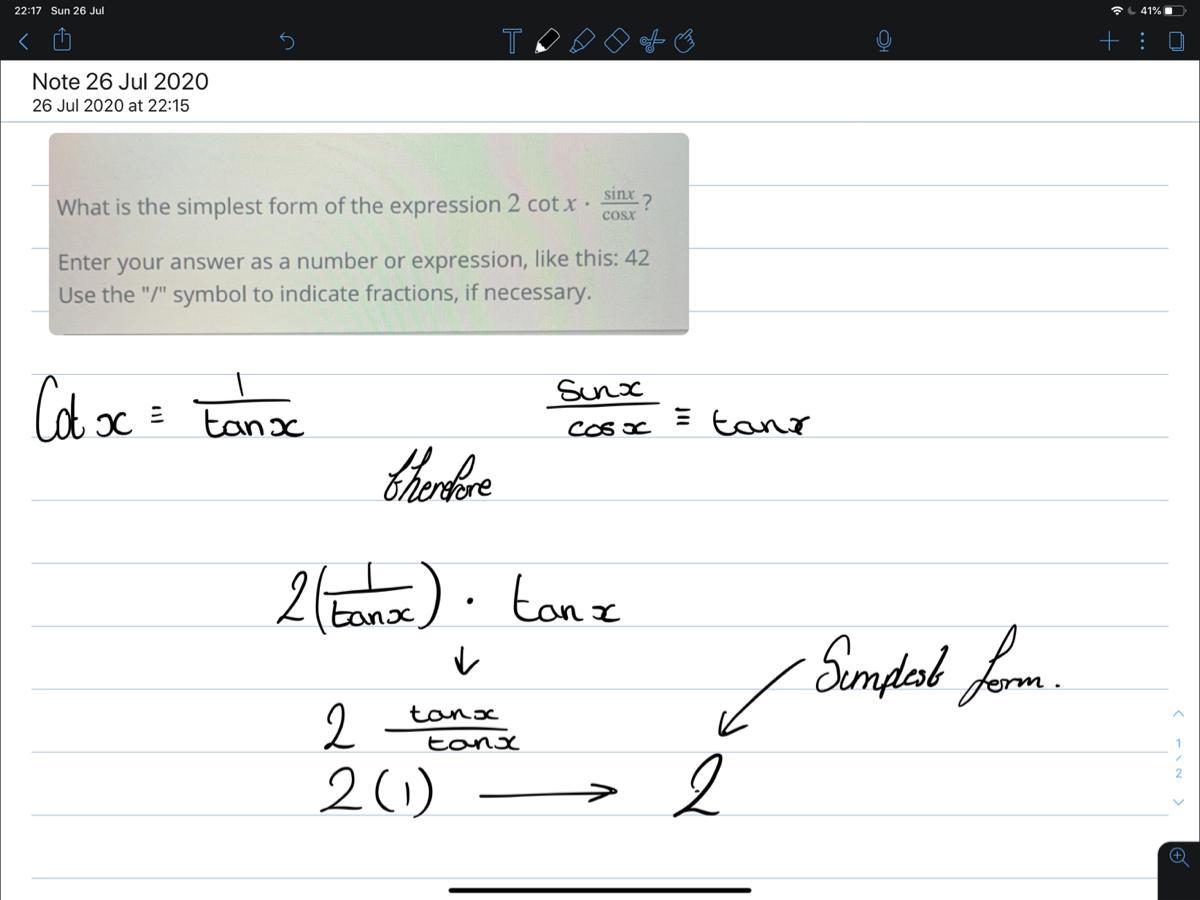 22:17 Sun 26 Jul
41%
T
Note 26 Jul 2020
26 Jul 2020 at 22:15
What is the simplest form of the expression 2 cot x · sinx/cosx ?
Enter your answer as a number or expression, like this: 42
Use the "/" symbol to indicate fractions, if necessary.
Cot x ≡ 1/tanx
sinx/cosx ≡ tanx
therefore
2(1/tanx) · tanx
↓
Simplest form.
2 tanx/tanx
2(1) → 2
1
/
2